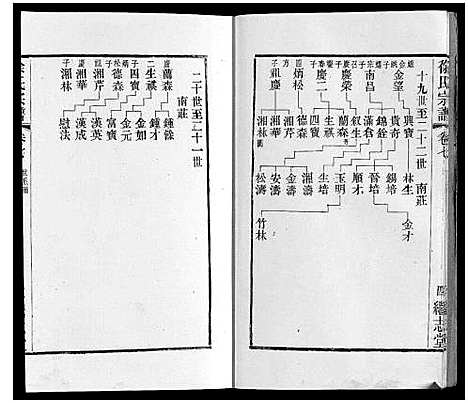 徐氏宗譜 卷七
四 繼志堂
十九世至二十二世 南莊
金望
南昌
慶榮
慶二
炳松
親慶
興寶
貴奇
錫銓
滿倉
叙生
蘭森
二生祺
四寶
德森
湘芹
湘華
湘林
林生
錫培
晉培
順才
玉明
生培
金濤
安濤
松濤
金才
竹林
二十世至二十一世
南莊
蘭森
二生祺
四寶
德森
湘芹
湘華
湘林
鍾才
金如
金元
富寶
漢英
漢成
慰法